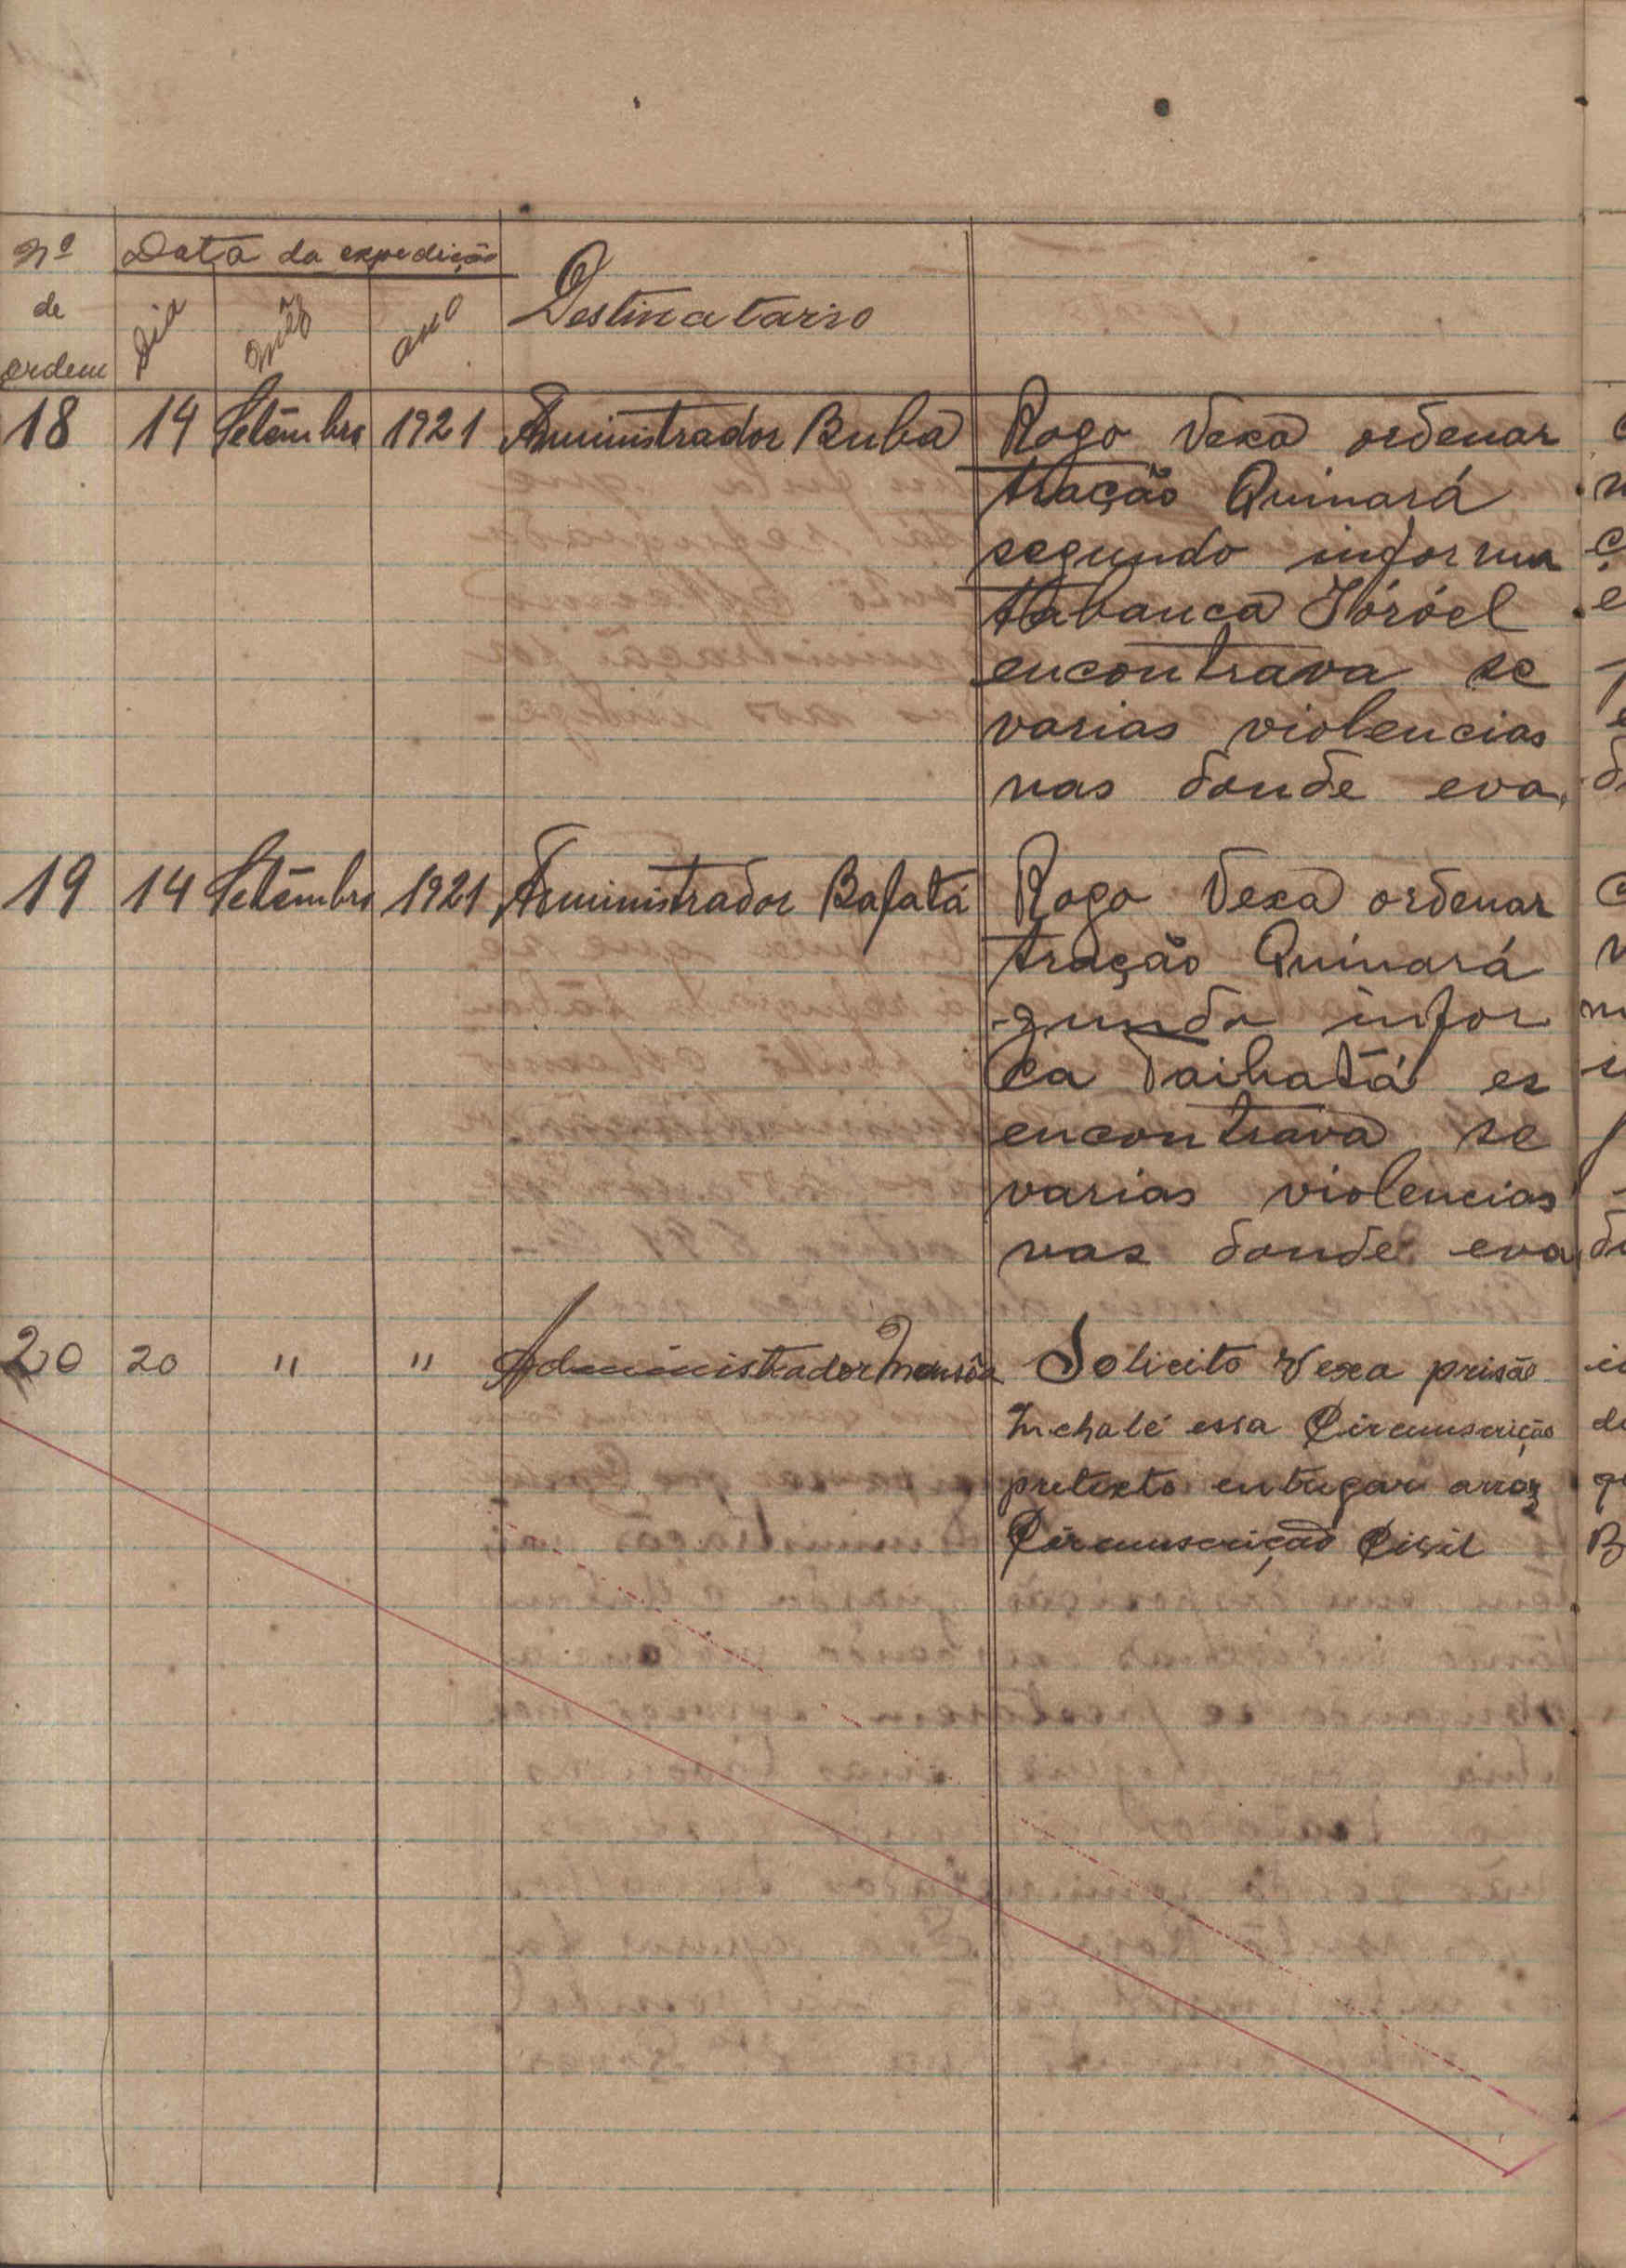 Nº de ordem
Data da expedição
Dia
Mês
Ano
Destinatario
18 14 Setêmbro 1921 Administrador Buba Rogo Vexa ordenar
tração Quinará
segundo informa
tabanca Jóróel
encontrava se
varias violencias
nas donde eva
19 14 Setêmbro 1921 Administrador Bafatá Rogo Vexa ordenar
tração Quinará
gundo infor
ca es
encontrava se
varias violencias
nas donde eva
20 20 " " Administrador Mansôa Solicito Vexa prisão
essa Circumscrição
pretexto entregar arroz
Circumscrição Civil